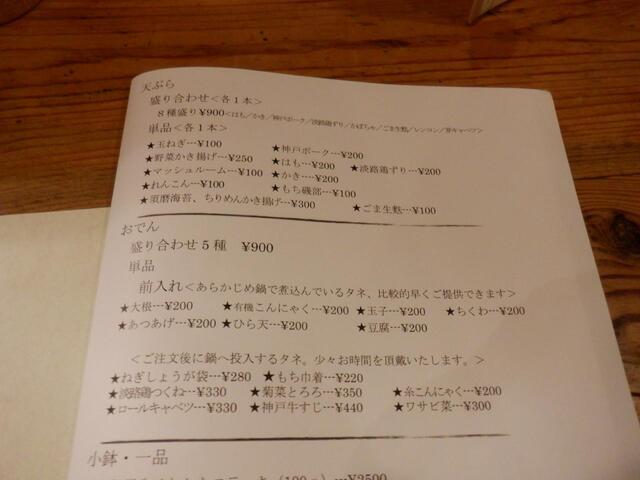 天ぷら
盛り合わせ<各1本>
8種盛り¥900<はも／かき／神戸ポーク／淡路鶏ずり／かぼちゃ／ごま生麩／レンコン／芽キャベツ>
単品<各1本>
★玉ねぎ…¥100 ★神戸ポーク…¥200
★野菜かき揚げ…¥250 ★はも…¥200 ★淡路鶏ずり…¥200
★マッシュルーム…¥100 ★かき…¥200
★れんこん…¥100 ★もち磯部…¥100
★須磨海苔、ちりめんかき揚げ…¥300 ★ごま生麩…¥100
おでん
盛り合わせ5種 ¥900
単品
前入れ<あらかじめ鍋で煮込んでいるタネ、比較的早くご提供できます>
★大根…¥200 ★有機こんにゃく…¥200 ★玉子…¥200 ★ちくわ…¥200
★あつあげ…¥200 ★ひら天…¥200 ★豆腐…¥200
<ご注文後に鍋へ投入するタネ。少々お時間を頂戴いたします。>
★ねぎしょうが袋…¥280 ★もち巾着…¥220
★淡路鶏つくね…¥330 ★菊菜とろろ…¥350 ★糸こんにゃく…¥200
★ロールキャベツ…¥330 ★神戸牛すじ…¥440 ★ワサビ菜…¥300
小鉢・一品